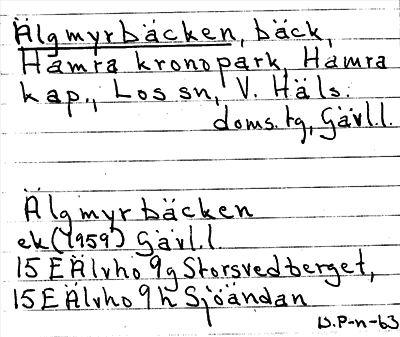 Älgmyrbäcken, bäck,
Hamra kronopark, Hamra
kap., Los sn, V. Häls.
doms. tg, Gävl.l.
Älgmyrbäcken
ek (1959) Gävl.l
15 E Älvho 9g Storsvedberget,
15 E Älvho 9h Sjöändan
B.P-n-63